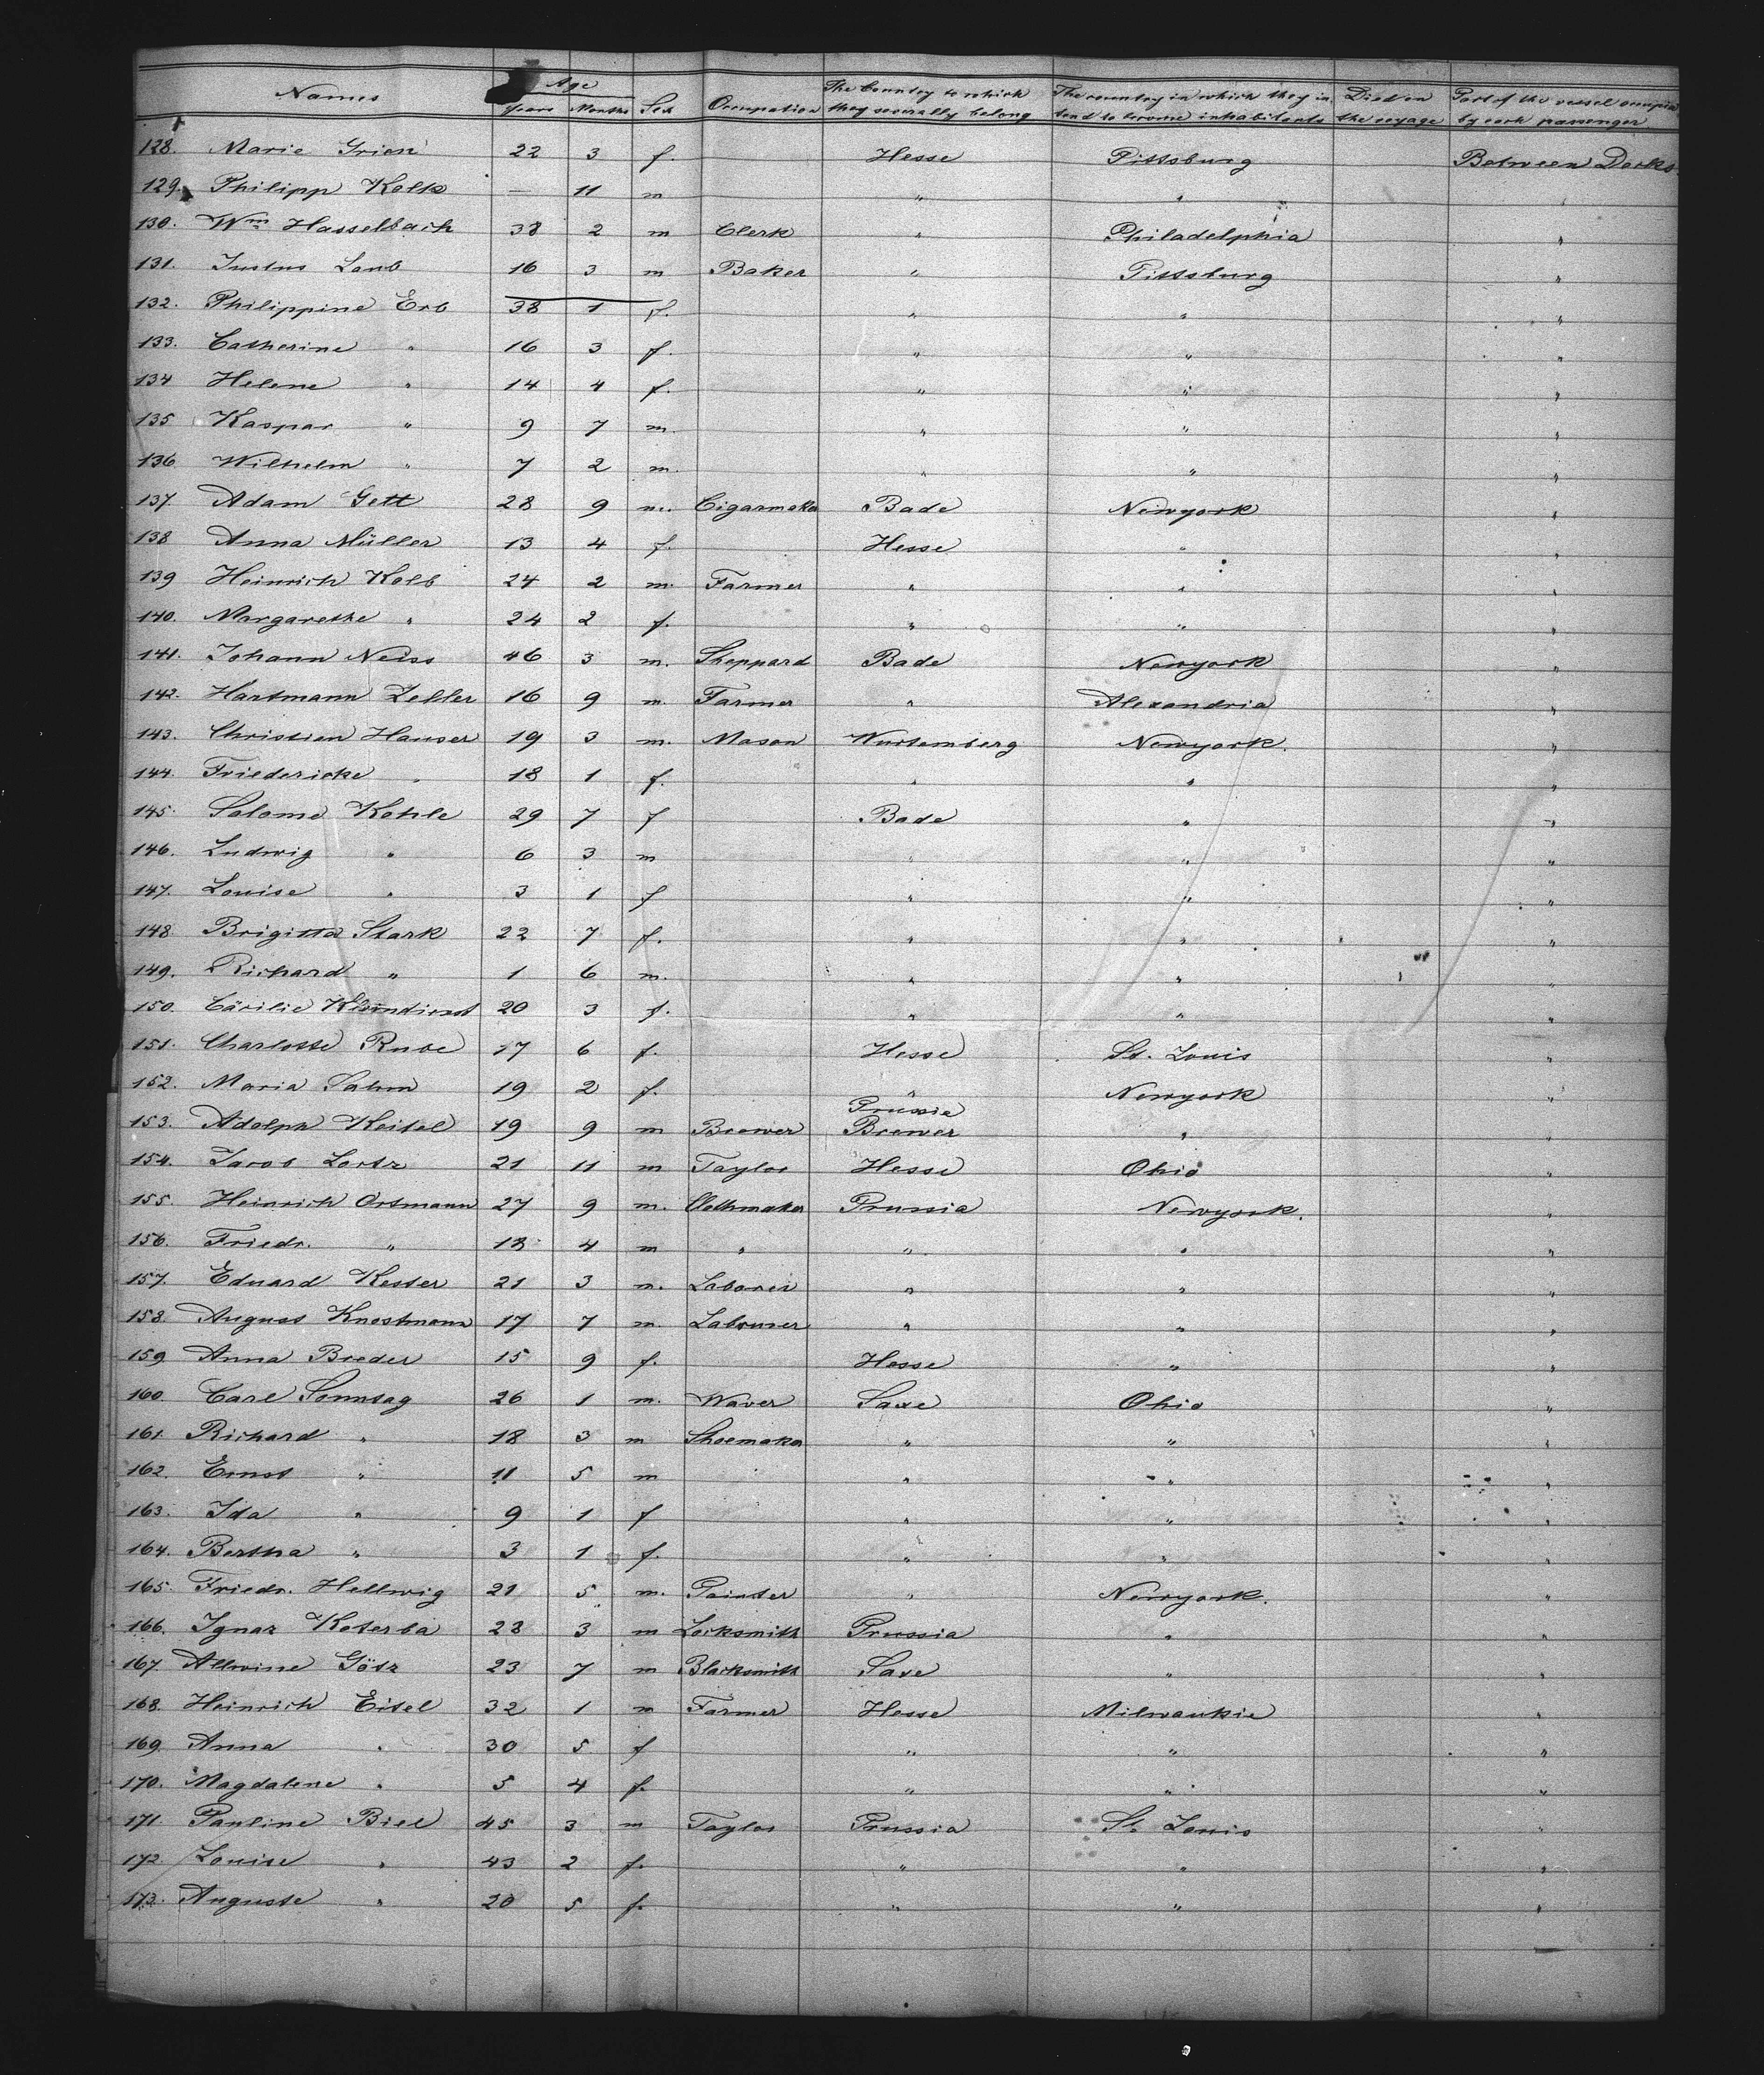 Names Age Years Months Sex Occupation The Country to which they severally belong The country in which they intend to become inhabitants Died on the voyage Part of the vessel occupied by each passenger
128. Marie Grien 22 3 f. Hesse Pittsburg Between Decks
129. Philipp Kolb — 11 m " " "
130. Wm Hasselbach 38 2 m Clerk " Philadelphia "
131. Justus Laub 16 3 m Baker " Pittsburg "
132. Philippine Erb 38 1 f. " " "
133. Catherine " 16 3 f. " " "
134 Helene " 14 4 f. " " "
135 Kaspar " 9 7 m. " " "
136 Wilhelm " 7 2 m. " " "
137. Adam Gett 28 9 m. Cigarmaker Bade Newyork "
138 Anna Müller 13 4 f. Hesse " "
139 Heinrich Kolb 24 2 m. Farmer " " "
140. Margarethe " 24 2 f. " " "
141. Johann Neiss 46 3 m. Sheppard Bade Newyork "
142. Hartmann Zeller 16 9 m. Farmer " Alexandria "
143. Christien Hauser 19 3 m. Mason Wurtemberg Newyork. "
144. Friedericke " 18 1 f. " " "
145. Salome Kohle 29 7 f Bade " "
146. Ludwig " 6 3 m " " "
147. Louise " 3 1 f " " "
148. Brigitta Stark 22 7 f. " " "
149. Richard " 1 6 m. " " "
150. Cäcilie 20 3 f. " " "
151. Charlotte Rube 17 6 f. Hesse St. Louis "
152. Maria Sahm 19 2 f. " Newyork "
153. Adolph Keitel 19 9 m Brewer Prussia Brewer " "
154. Jacob Lortz 21 11 m Taylor Hesse Ohio "
155. Heinrich Ortmann 27 9 m. Clothmaker Prussia Newyork. "
156. Friedr. " 18 4 m " " " "
157. Eduard Kester 21 3 m. Laborer " " "
158. August Knostmann 17 7 m. Labourer " " "
159 Anna Breder 15 9 f. Hesse " "
160. Carl Sonntag 26 1 m. Waver Saxe Ohio "
161. Richard " 18 3 m Shoemaker " " "
162. Ernst " 11 5 m " " "
163. Ida " 9 1 f " " "
164. Bertha " 3 1 f. " " "
165. Friedr. Hellwig 21 5 m. Painter " Newyork. "
166. Ignaz Koterba 28 3 m Locksmith Prussia " "
167. Allwine Götz 23 7 m Blacksmith Saxe " "
168. Heinrich Eitel 32 1 m Farmer Hesse Milwaukie "
169. Anna " 30 5 f " " "
170. Magdalene " 5 4 f. " " "
171. Pauline Biel 45 3 m Taylor Prussia St. Louis "
172. Louise " 43 2 f. " " "
173. Auguste " 20 5 f. " " "